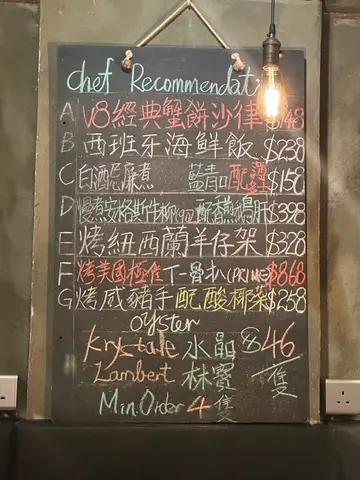 chef Recommendat
A V8經典蟹餅沙律 $148
B 西班牙海鮮飯 $238
C 白酒忌廉煮 藍青口配薯 $158
D 慢煮安格斯牛柳 配香燻鵝肝 $398
E 烤紐西蘭羊仔架 $328
F 烤美國極隹丁骨扒(PRIME) $868
G 烤咸豬手配酸椰菜 $258
oyster
Krystale 水晶 $46
Lambert 林寶 /隻
Min. Order 4隻